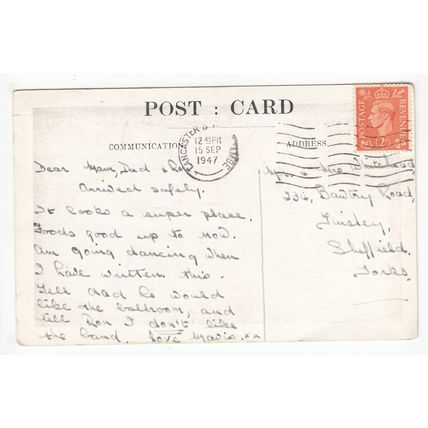 POST : CARD
COMMUNICATION
ADDRESS
LANCASTER &
12 PM
15 SEP
1947
POSTAGE
REVENUE
2D
Dear Mam, Dad & Ron
Arrived safely.
It looks a super place.
Foods good up to now.
Am going dancing when
I have written this.
Tell dad he would
like the ballroom, and
tell Ron I don't like
the band. Love Mavis. xx
Mr & Mrs
234, Bawtry Road,
Tinsley,
Sheffield.
Yorks.